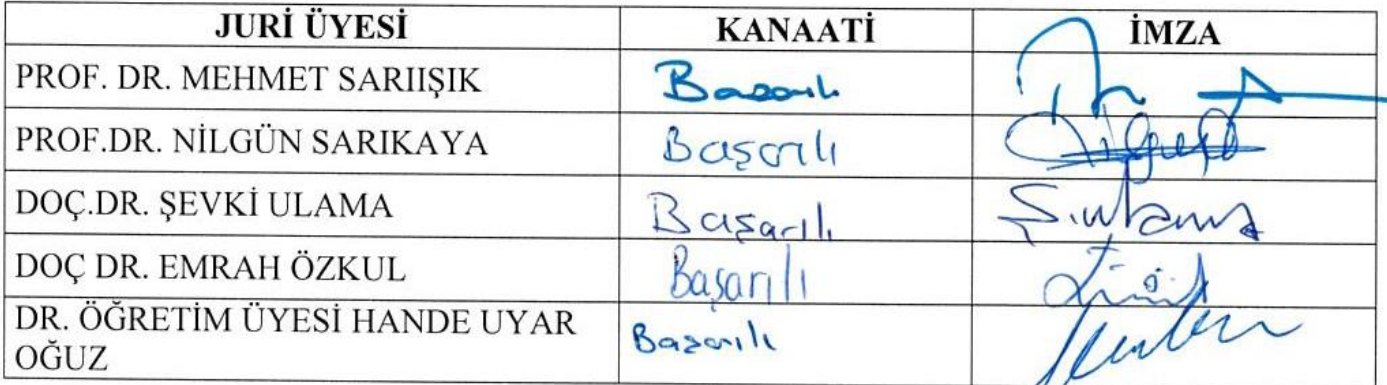 JURİ ÜYESİ KANAATİ İMZA
PROF. DR. MEHMET SARIIŞIK Başarılı
PROF.DR. NİLGÜN SARIKAYA Başarılı
DOÇ.DR. ŞEVKİ ULAMA Başarılı Ş.ulama
DOÇ DR. EMRAH ÖZKUL Başarılı
DR. ÖĞRETİM ÜYESİ HANDE UYAR Başarılı
OĞUZ